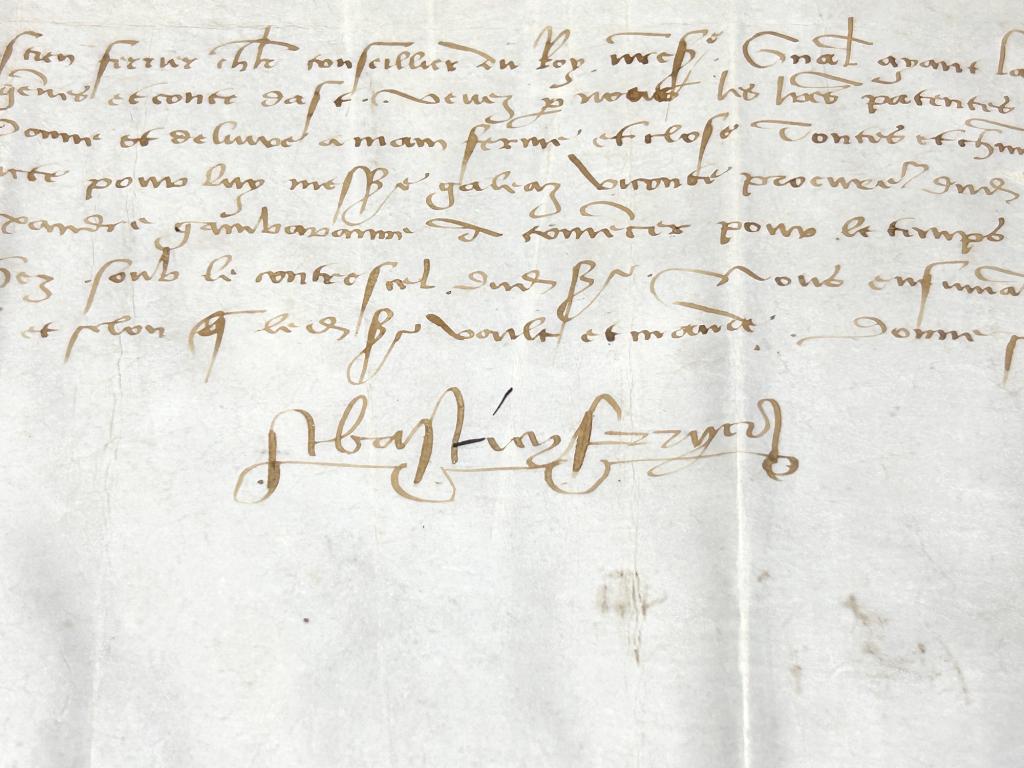 stien ferrier chlr conseillier du Roy nre sgr Gnal ayant la
gennes et conte dast . veuez p nous les lres patentes
Donne et delivre a main ferme et close Toutes et
pour luy messre galeaz viconte procurer dud
xandre gambaranne A comencer pour le temps
soub le contrescel dud sr . Nous ensuma
et selon q led sr veult et mande . Donne
sebastien ferryer